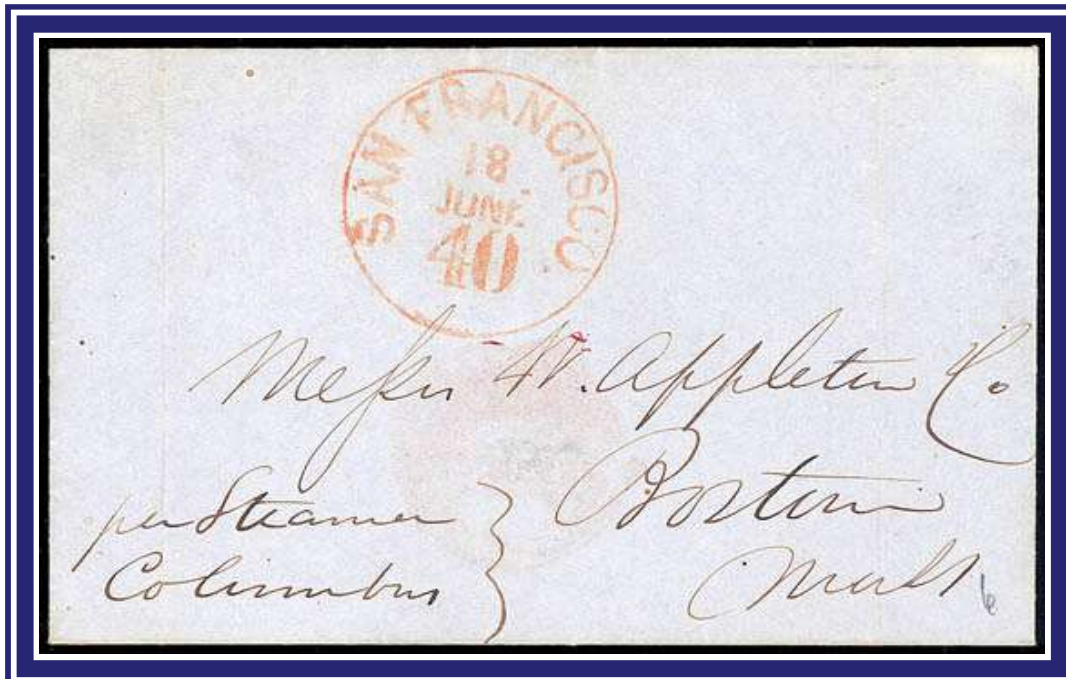 SAN FRANCISCO
18
JUNE
40
Messrs W. Appleton Co
Boston
Mass
per Steamer
Columbus